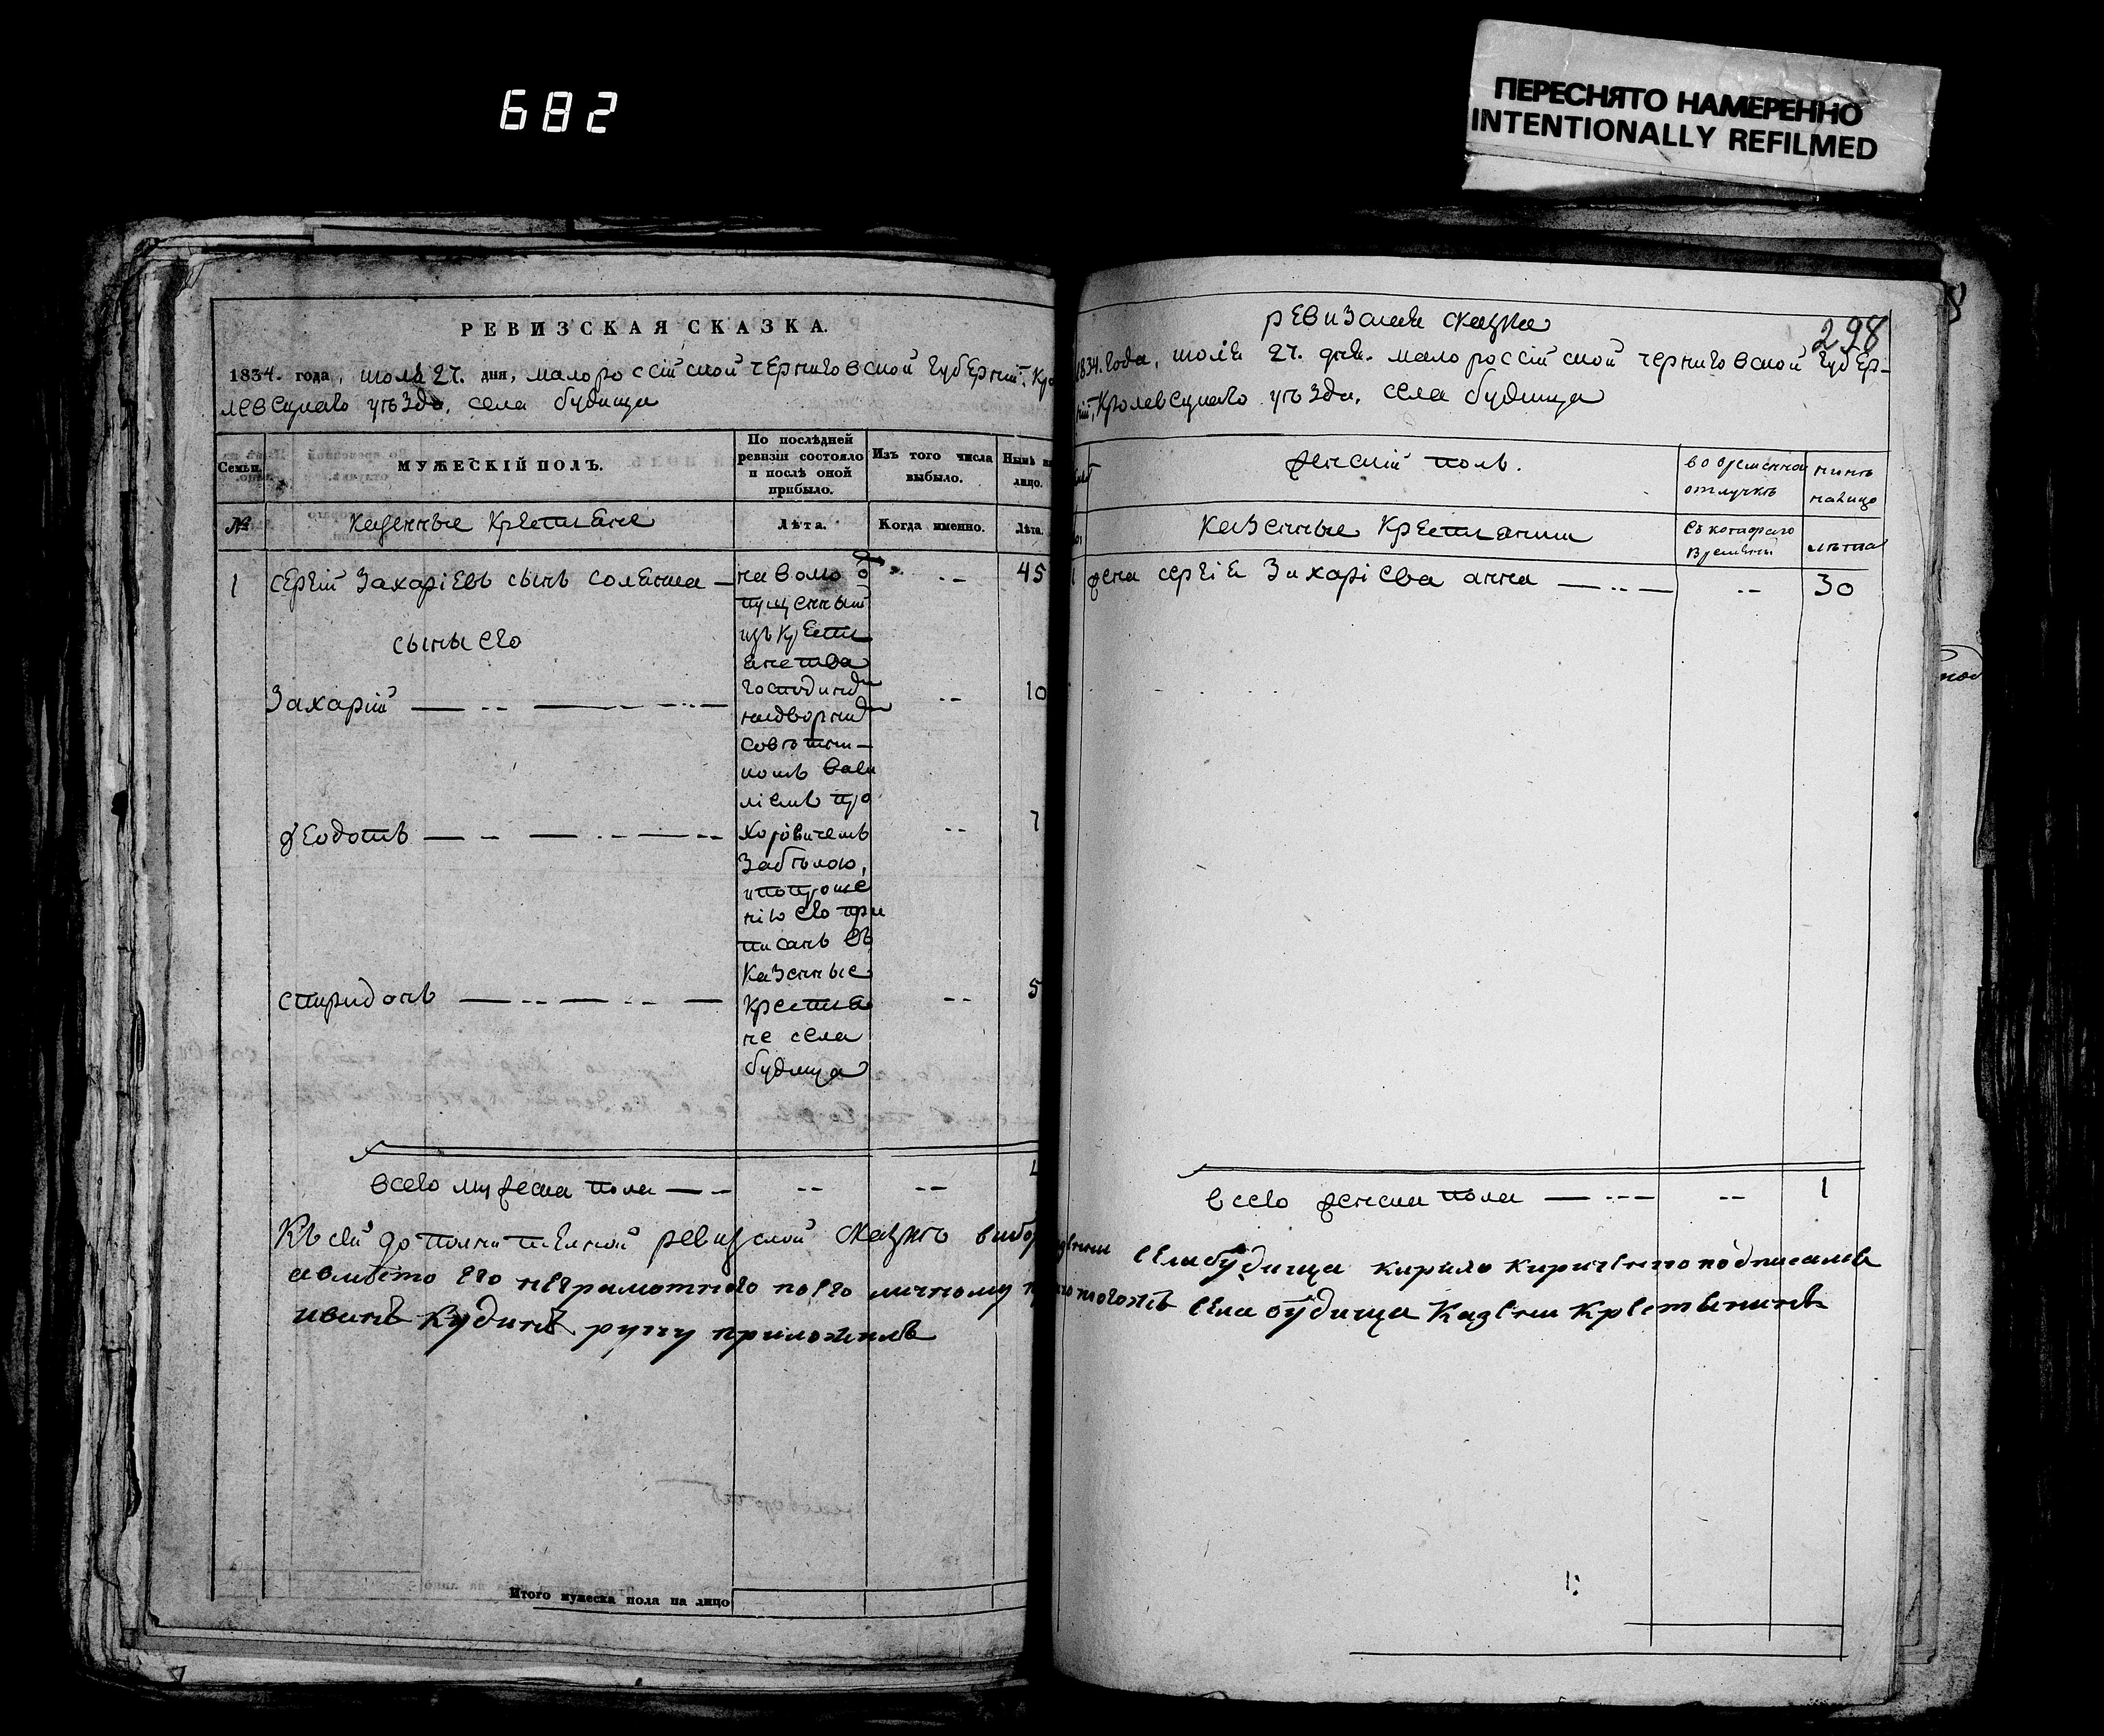 682
ПЕРЕСНЯТО НАМЕРЕННО
INTENTIONALLY REFILMED
РЕВИЗСКАЯ СКАЗКА.
1834. года, июля 27. дня, малороссійской черниговской губерніи, Кро
левецкаго уѣзда, села будища
Семьи.
МУЖЕСКІЙ ПОЛЪ.
По послѣдней
ревизіи состояло
и послѣ оной
прибыло.
Изъ того числа
выбыло.
Нынѣ на
лицо.
№
казенные Крестьяне
Лѣта.
Когда именно.
Лѣта.
1 сергій Захаріевъ сынъ — 45
сыны его
Захарій 10
феодотъ 7
спиридонъ 5
на волю о
пущенный
изъ крестья
янства
господиномъ
надворнымъ
совѣтни-
комъ Васи
ліемъ про
хоровичемъ
Забѣлою,
и по проше
нію его при
писанъ въ
Казенные
Крестья
не села
будища
всего мужеска пола — -- -- 4
Къ сей дополнительной ревизской сказкѣ выбор
а вместо его неграмотного по его личному
иванъ Кудинъ руку приложилъ
Итого мужеска пола на лицо
298
ревизская сказка
1834. года, июля 27. дня. малороссійской черниговской губер-
ніи, Кролевецкаго уѣзда, села будища
женскій полъ.
во временной
отлучкѣ
нинѣ
налицо
Казенные Крестьянки
съ котораго
времени
лѣта
жена сергія Захаріева анна — -- 30
всего женска пола — -- 1
села будища кирило кириченко подписался
того жъ села будища Казенн крестянинъ